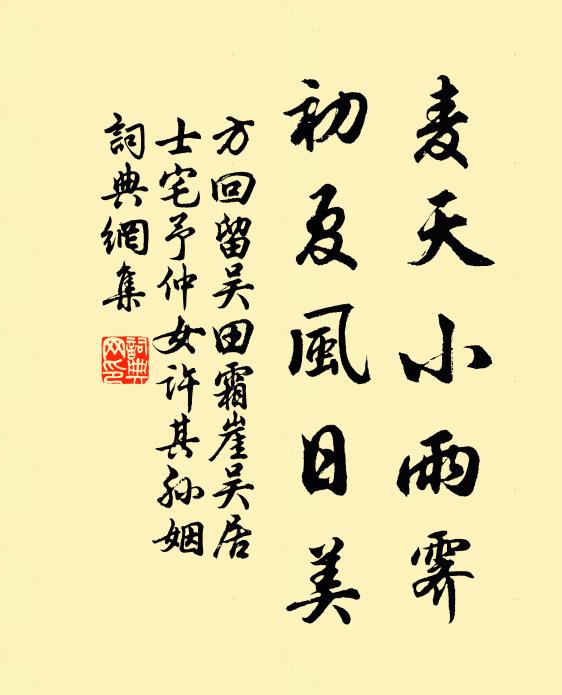 麦天小雨霽
初夏風日美
方回留吴田霜崖吴居
士宅予仲女许其孙姻
詞典網集
詞典
网印